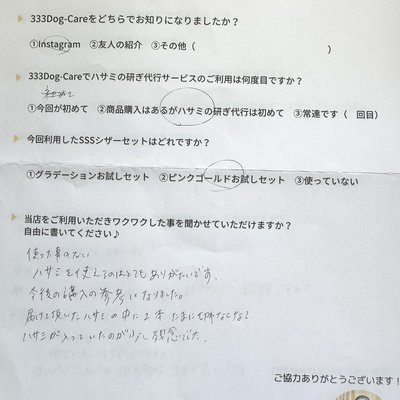 333Dog-Careをどちらでお知りになりましたか？
①Instagram ②友人の紹介 ③その他（ ）
333Dog-Careでハサミの研ぎ代行サービスのご利用は何度目ですか？
①今回が初めて ②商品購入はあるがハサミの研ぎ代行は初めて ③常連です（ 回目）
今回利用したSSSシザーセットはどれですか？
①グラデーションお試しセット ②ピンクゴールドお試しセット ③使っていない
当店をご利用いただきワクワクした事を聞かせていただけますか？
自由に書いてください♪
使った事のない
ハサミを使えるのはとてもありがたいです。
今後の購入の参考になりました。
届けて頂いたハサミの中に2本 たまに切れなくなる
ハサミが入っていたのが少し残念でした.
ご協力ありがとうございます！